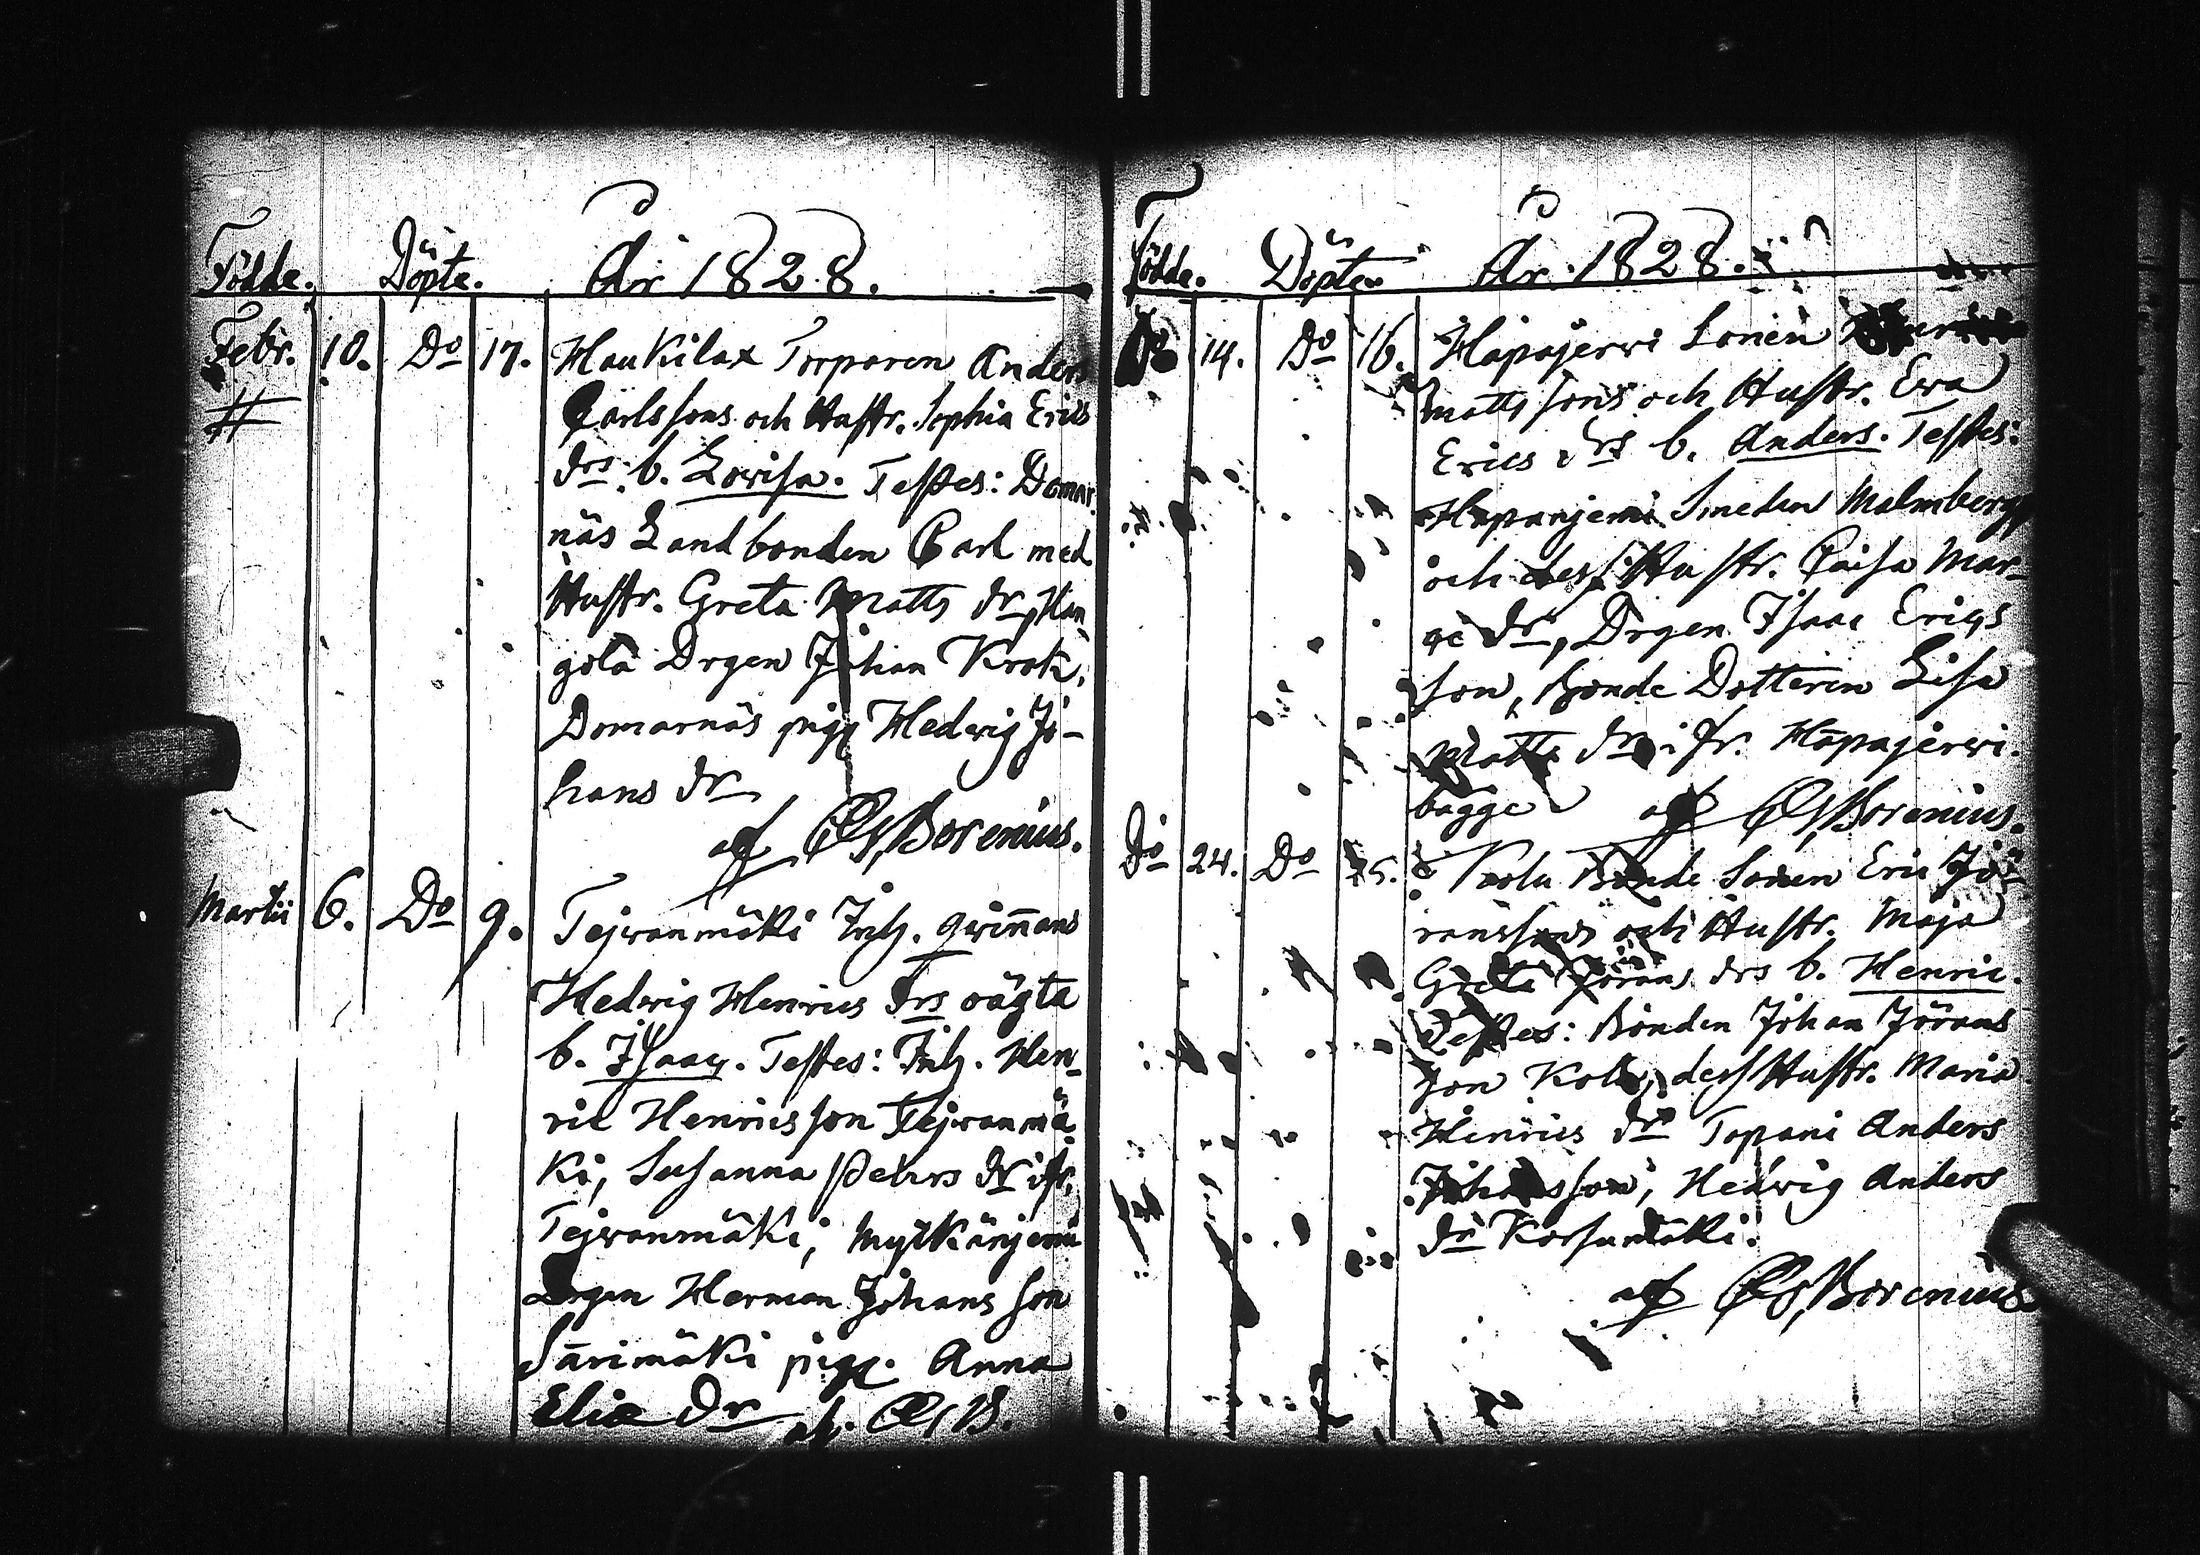 Födde. Döpte. År 1828.
Febr. 10. Do 17. Haukilax Torparen Anders
Carlssons och Hustr. Sophia Erics
drs. b. Lovisa. Testes: Domar
näs Landbonden Carl med
Hustr. Greta Matts dr, Han
gola Drgen Johan Krok,
Domarnäs pig Hedvig Jo-
hans dr
af Borenius.
Martii 6. Do 9. Tejvanmäki Inh. qvinnans
Hedvig Henrics drs oägta
b. Isaac. Testes: Inh. Hen-
ric Henricsson Tejvanmä
ki, Susanna Pehrs dr ifr.
Tejvanmäki, Myllkänjemi
Drgen Herman Johansson
Särimäki pig. Anna
Elie dr af. B.
Födde. Döpte. År 1828.
Do 14. Do 16. Hapajervi Sonen
Mattssons och Hustr. Eva
Erics drs b. Anders. Testes:
Hapanjemi Smeden Malmberg
och dess Hustr. Caisa Mar-
dr, Drgen Isaac Erics
son, Bonde Dotteren Lisa
Matts dr ifr. Hapajervi.
bägge af Borenius.
Do 24. Do Kolu Bonde Sonen Eric Jö-
ranssons och Hustr. Maja
Greta Jörans drs b. Henric.
Testes: Bonden Johan Jörans
son Kolu, dess Hustr. Maria
Henrics dr Tapani Anders
Johansson, Hedvig Anders
dr Korsumäki.
af Borenius